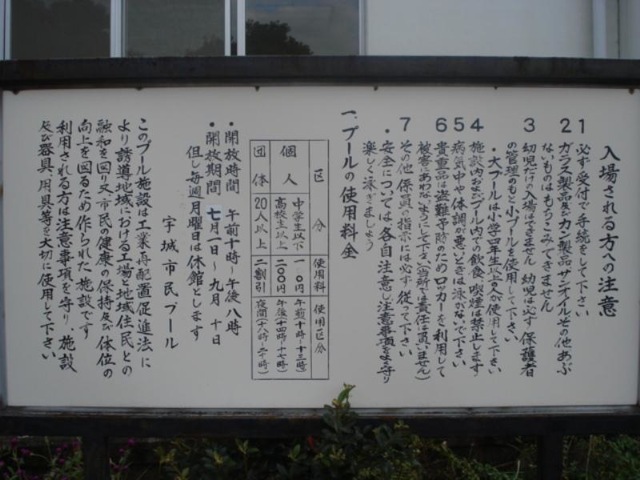 入場される方への注意
1 必ず受付で手続をして下さい
2 ガラス製品及びカン製品サンオイルその他あぶ
ないものはもちこみできません
3 幼児だけの入場はできません 幼児は必ず保護者
の管理のもと小プールを使用して下さい
・大プールは小学四年生以上の人が使用して下さい
4 施設内およびプール内での飲食、喫煙は禁止します
5 病気中や体調が悪いときは泳がないで下さい
6 貴重品は盗難予防のためロッカーを利用して
被害にあわないようにして下さい(当所では責任は負いません)
7 その他係員の指示には必ず従って下さい
・安全については各自注意し注意事項をよく守り
楽しく泳ぎましょう
一、プールの使用料金
区分 使用料 使用区分
個人 中学生以下 一〇円 午前(十時〜十三時)
高校生以上 二〇〇円 午後(十四時〜十七時)
団体 20人以上 二割引 夜間(十八時〜二十時)
・開放時間 午前十時〜午後八時
・開放期間 七月一日〜九月十日
但し毎週月曜日は休館とします
宇城市民プール
このプール施設は工業再配置促進法に
より誘導地域における工場と地域住民との
融和を図り又市民の健康の保持及び体位の
向上を図るため作られた施設です
利用される方は注意事項を守り、施設
及び器具、用具等を大切に使用して下さい